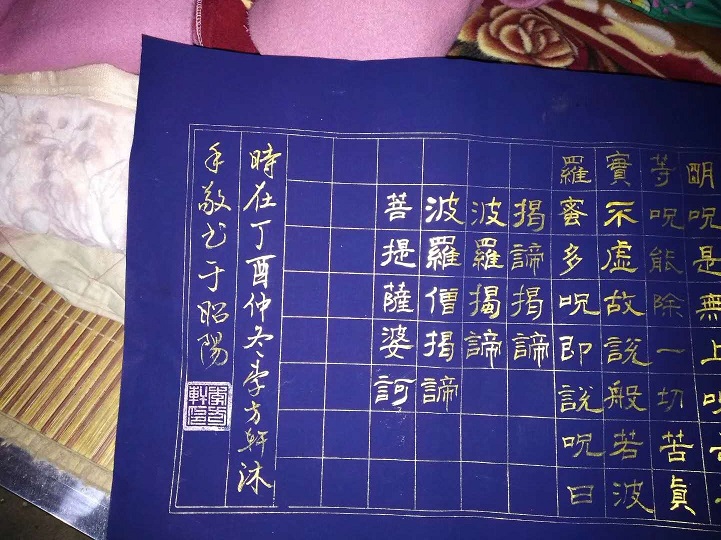 明呪是無上呪
等呪能除一切苦真
實不虛故說般若波
羅蜜多呪即說呪曰
揭諦揭諦
波羅揭諦
波羅僧揭諦
菩提薩婆訶
時在丁酉仲冬李方軒沐
手敬书于昭陽